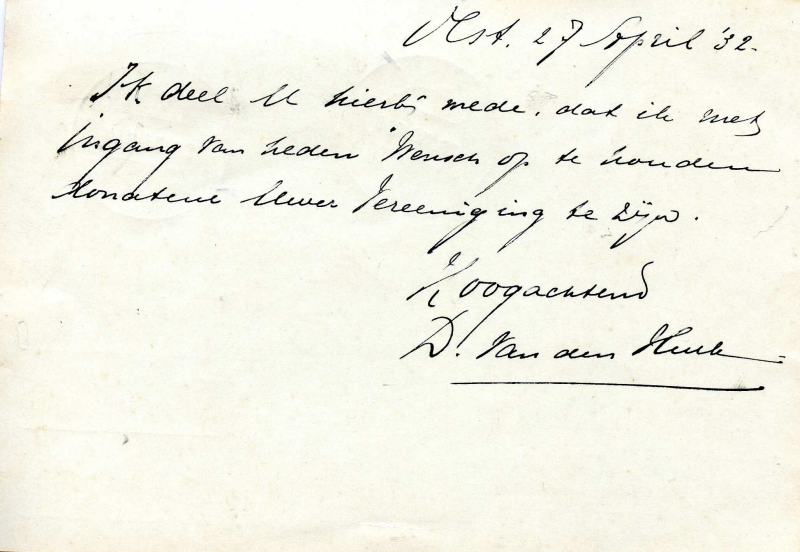 Olst. 27 April '32.
Ik deel U hierbij mede, dat ik met
ingang van heden wensch op te houden
donatrice Uwer Vereeniging te zijn.
Hoogachtend
D. van den